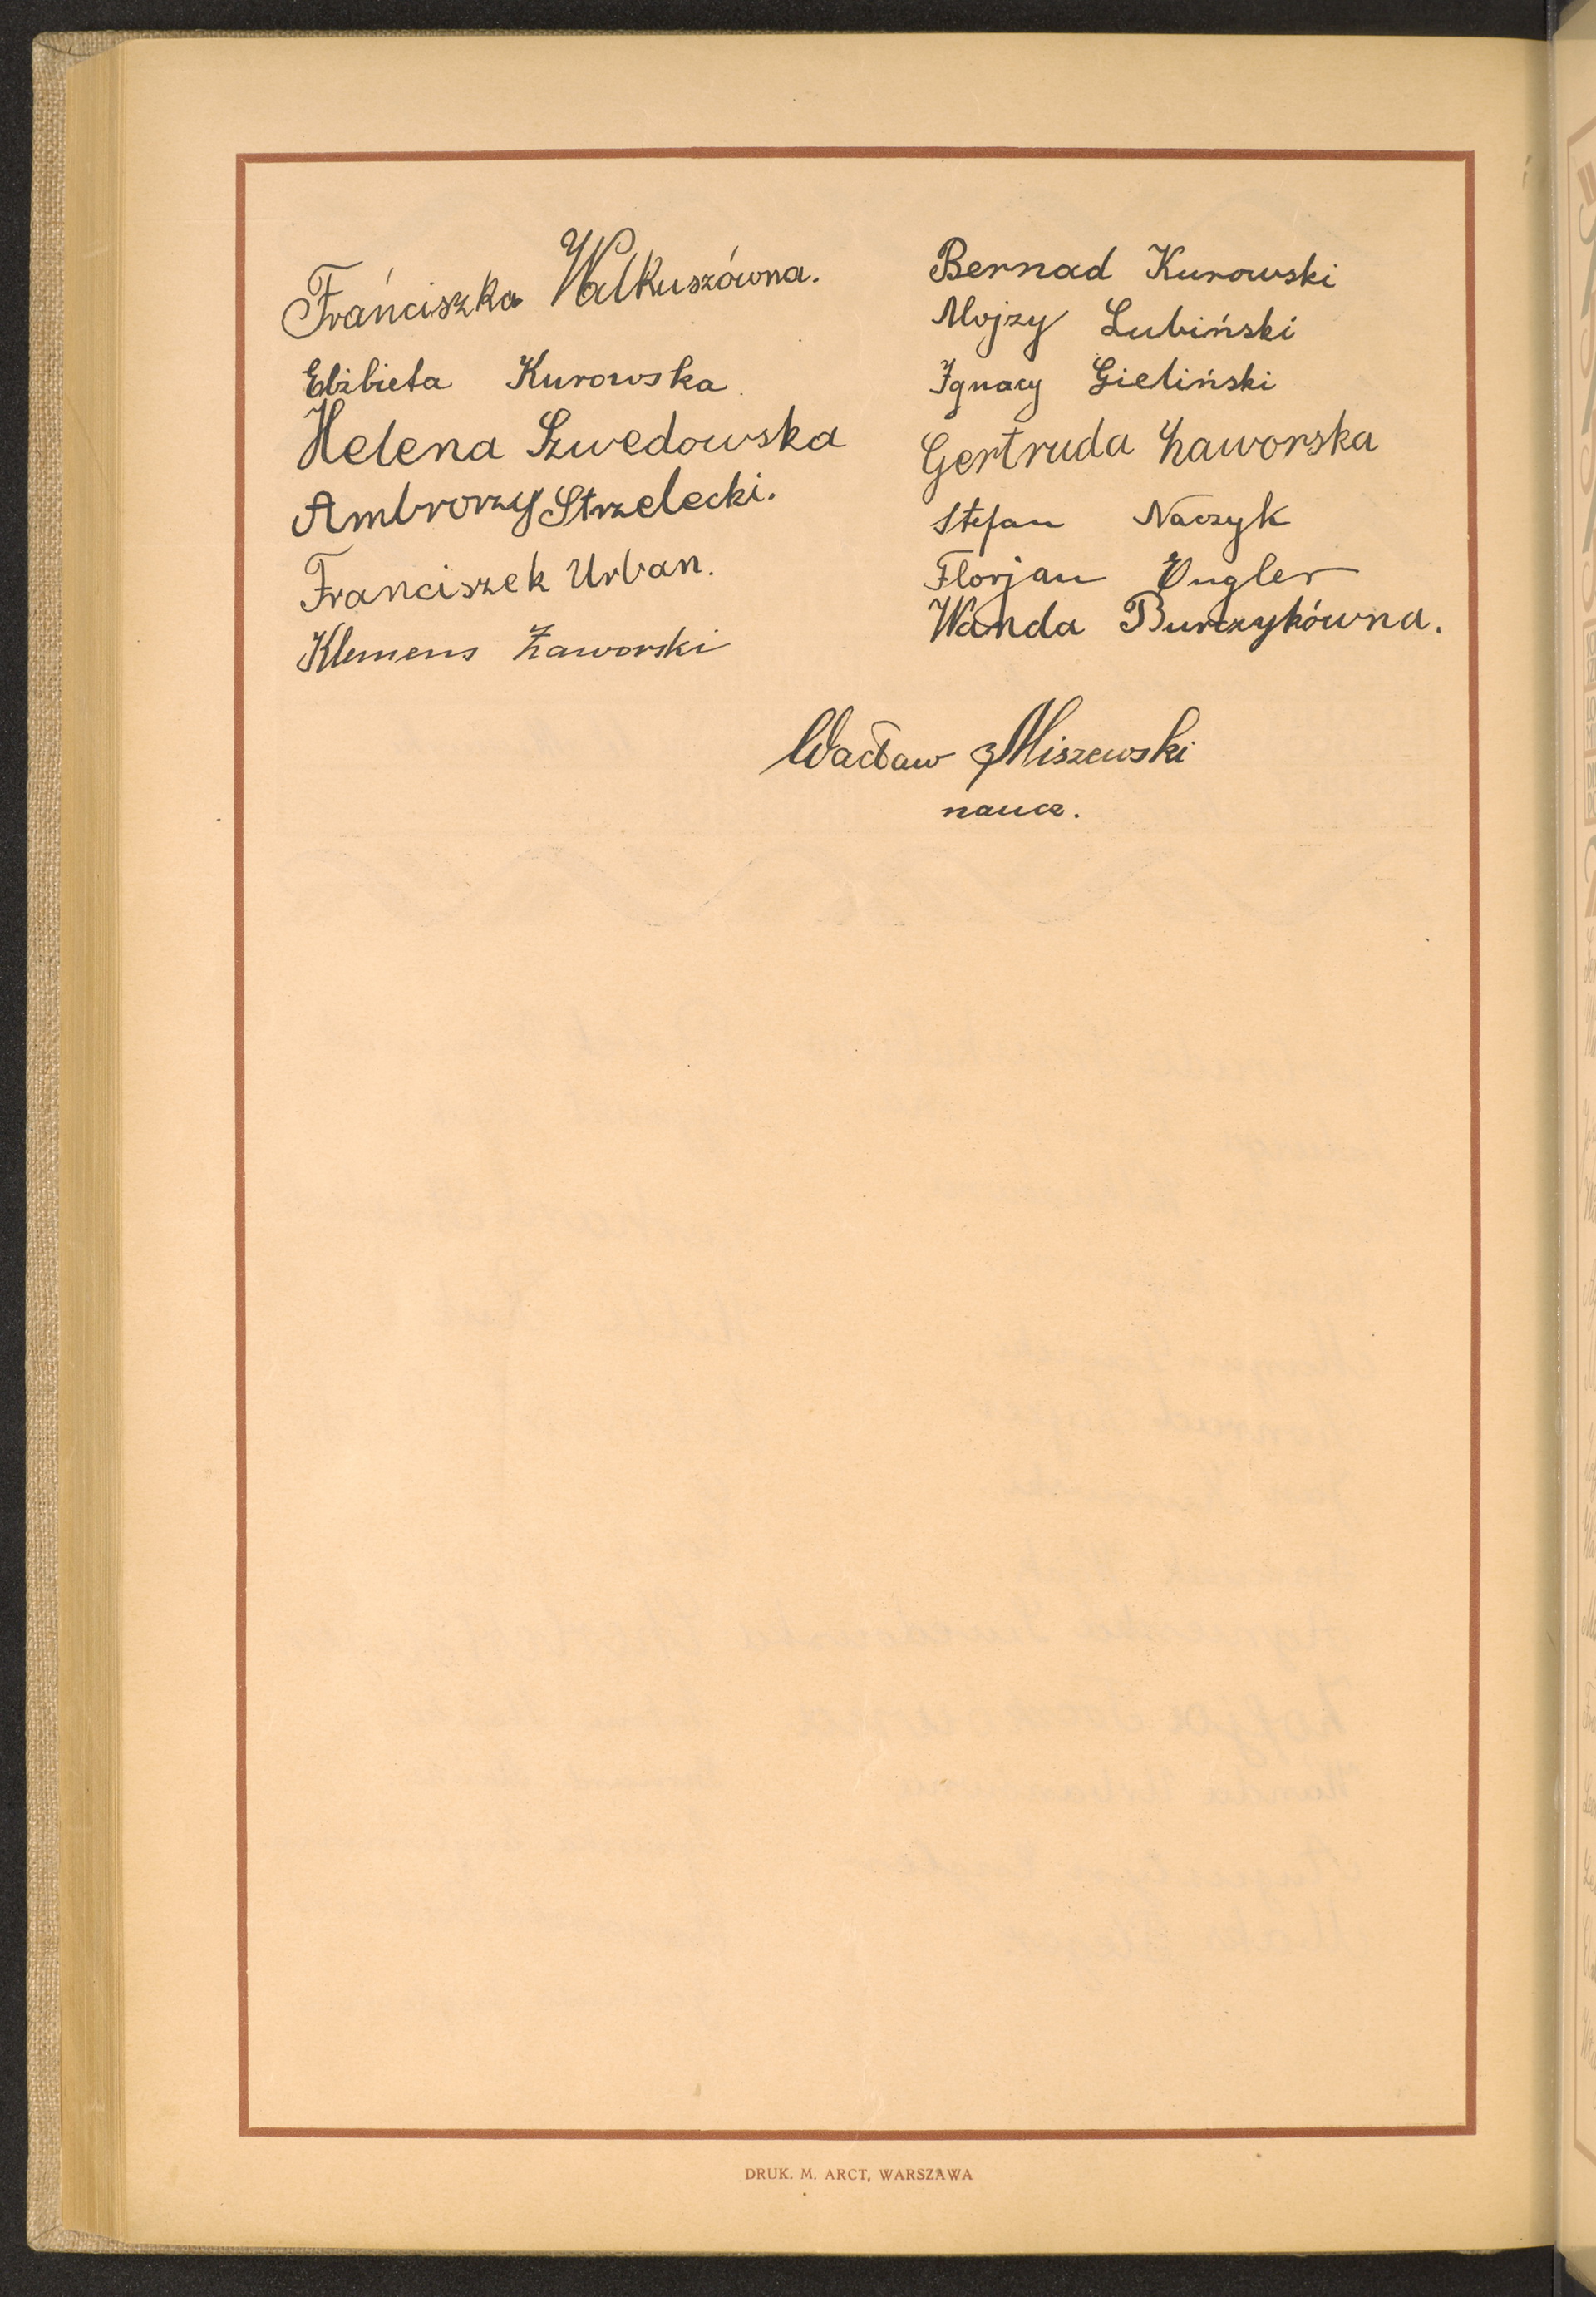 Frańciszka Walkuszówna.
Elżbieta Kurowska
Helena Szwedowska
Ambrorzy Strzelecki.
Franciszek Urban.
Klemens Zaworski
Bernad Kurowski
Mojzy Lubiński
Ignacy Gieliński
Gertruda Zaworska
Stefan Naczyk
Florjan Engler
Wanda Burczykówna.
Wacław Miszewski
naucz.
DRUK. M. ARCT, WARSZAWA